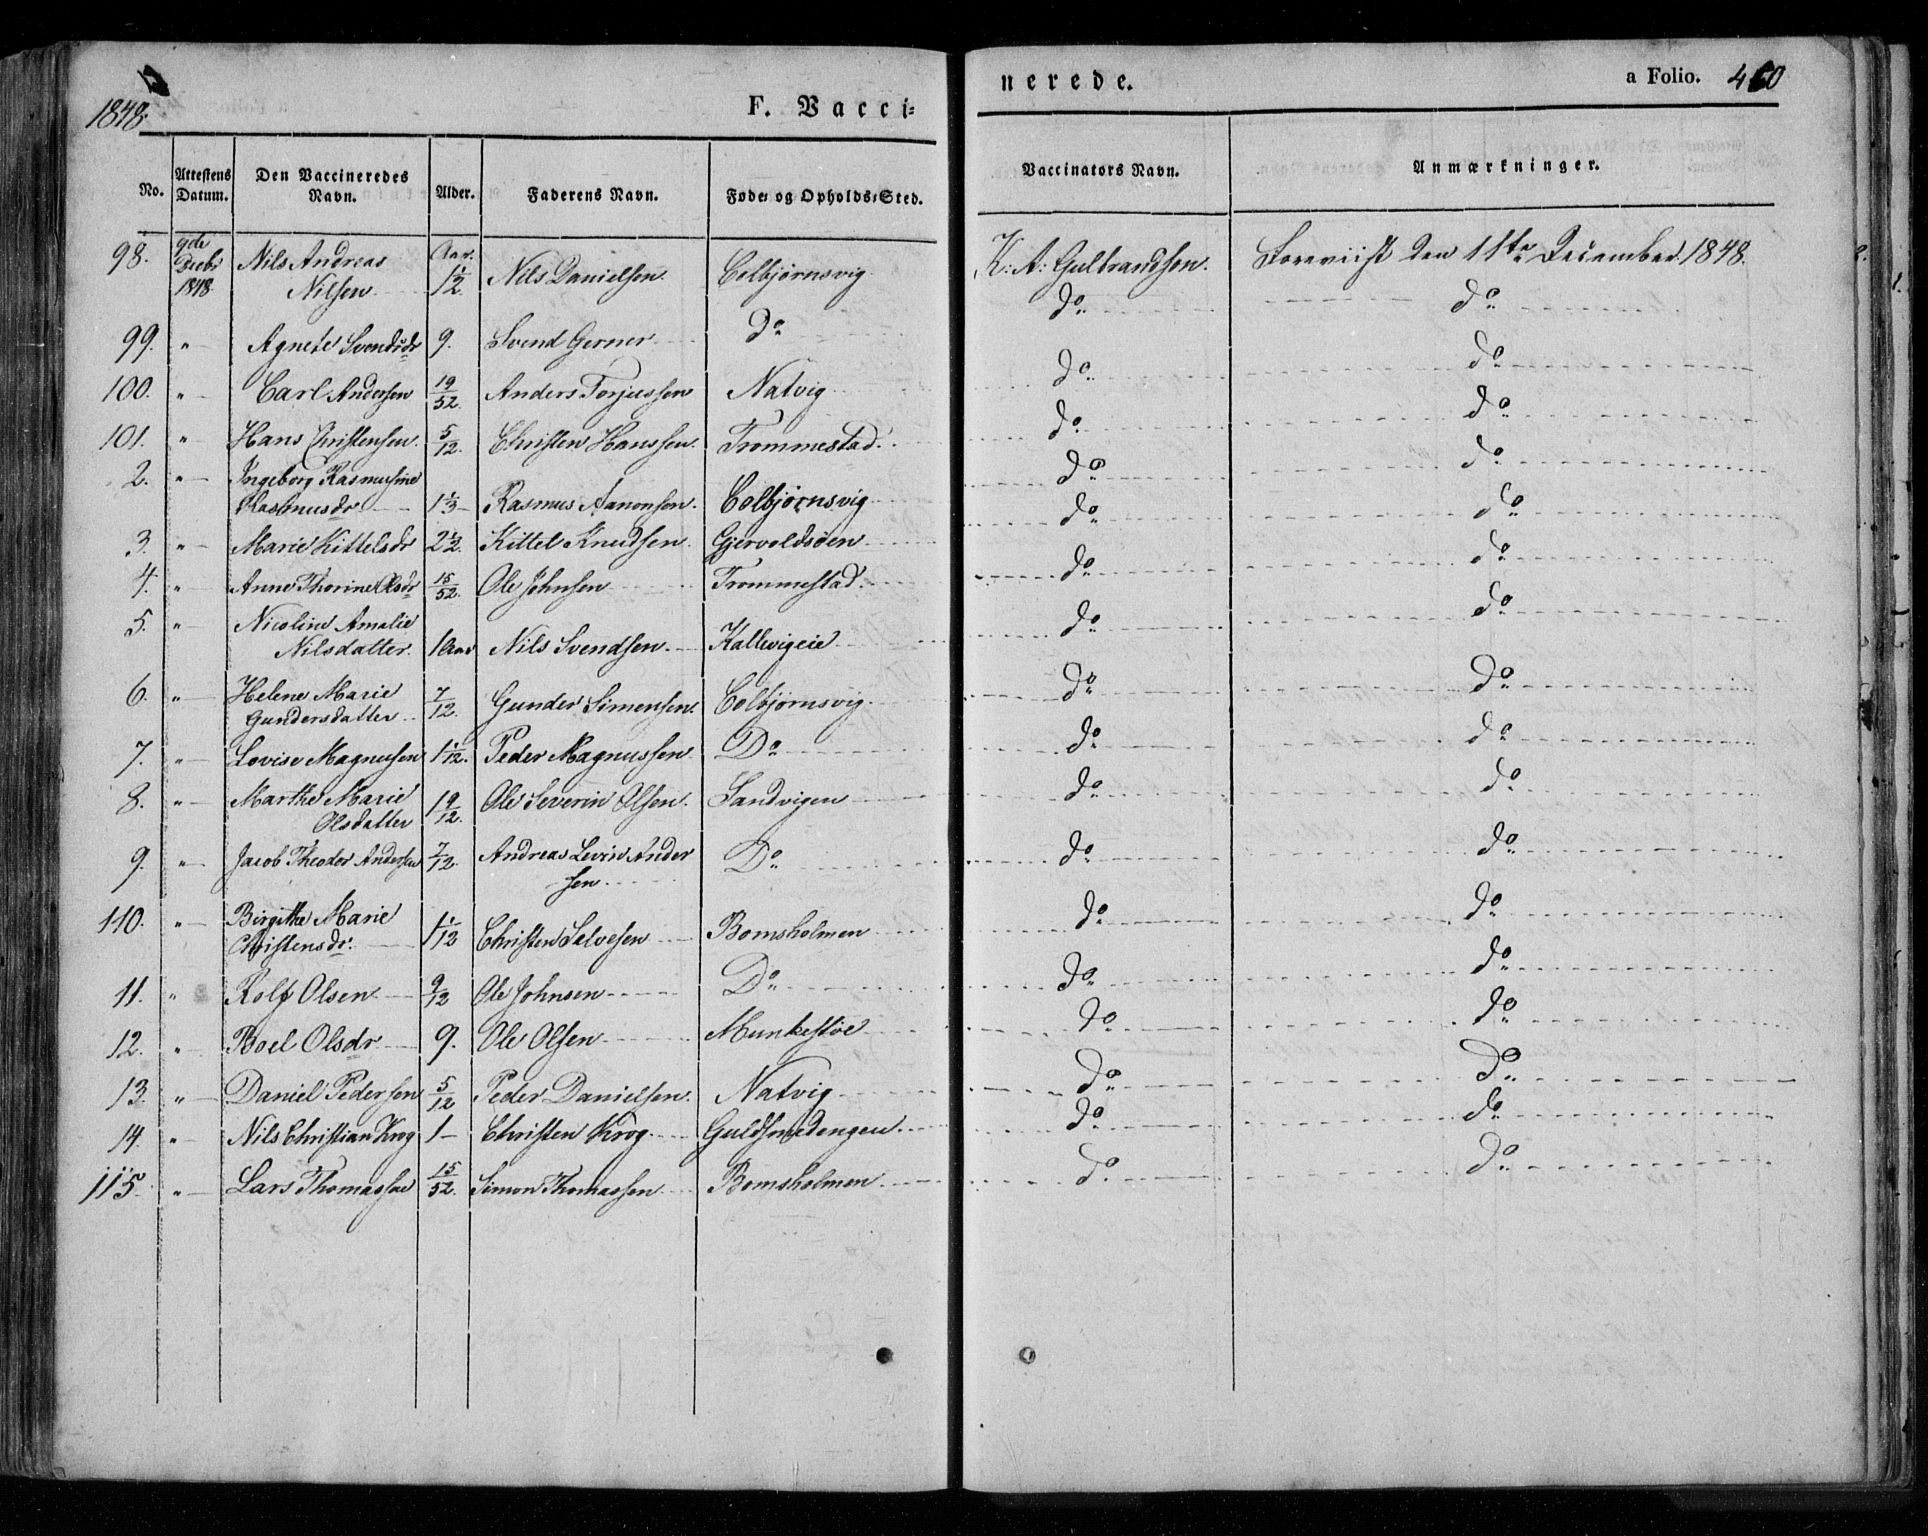 1848.
F. Vacci-
nerede.
a Folio. 460
No. Attestens Datum. Den Vaccineredes Navn. Alder. Faderens Navn. Føde- og Opholds-Sted. Vaccinators Navn. Anmærkninger.
98. 9de Decbr 1848 Nils Andreas Nilsen Aar. 1½ Nils Danielsen Colbjørnsvig K: A: Gulbrandsen. Foreviist den 11te December 1848.
99. " Agnete Svendsdr 9. Svend Gerner Do do do
100. " Carl Andersen 19/52 Anders Torjussen Natvig do do
101. " Hans Christensen 5/12 Christen Hanssen Trommestad. do do
2. " Ingeborg Rasmusine Rasmusdr 1⅓ Rasmus Aanonsen. Colbjørnsvig do do
3. " Marie Kittelsdr 2½ Kittel Knudsen Gjervoldsøen do do
4. " Anne Thorine Olsdr 15/52 Ole Johnsen Trommestad. do do
5. " Nicoline Amalie Nilsdatter 1 Aar Nils Svendsen Kallevigeie do do
6. " Helene Marie Gundersdatter 7/12 Gunder Simensen. Colbjørnsvig do do
7. " Lovise Magnusen 1 1/12. Peder Magnussen Do do do
8. " Marthe Marie Olsdatter 19/12 Ole Severin Olsen. Sandvigen do do
9. " Jacob Theodor Andersen 7/12. Andreas Levin Andersen Do do do
110. " Birgithe Marie Christensdr. 1 1/12 Christen Salvesen Bomsholmen do do
11. " Rolf Olsen 9/12 Ole Johnsen Do do do
12. " Boel Olsdr 9. Ole Olsen Munkestøe do do
13. " Daniel Pedersen 5/12 Peder Danielsen. Natvig do do
14. " Nils Christian Krog 1 Christen Krog Guldsmedengen do do
115. " Lars Thomassen 15/52. Simon Thomassen Bomsholmen do do